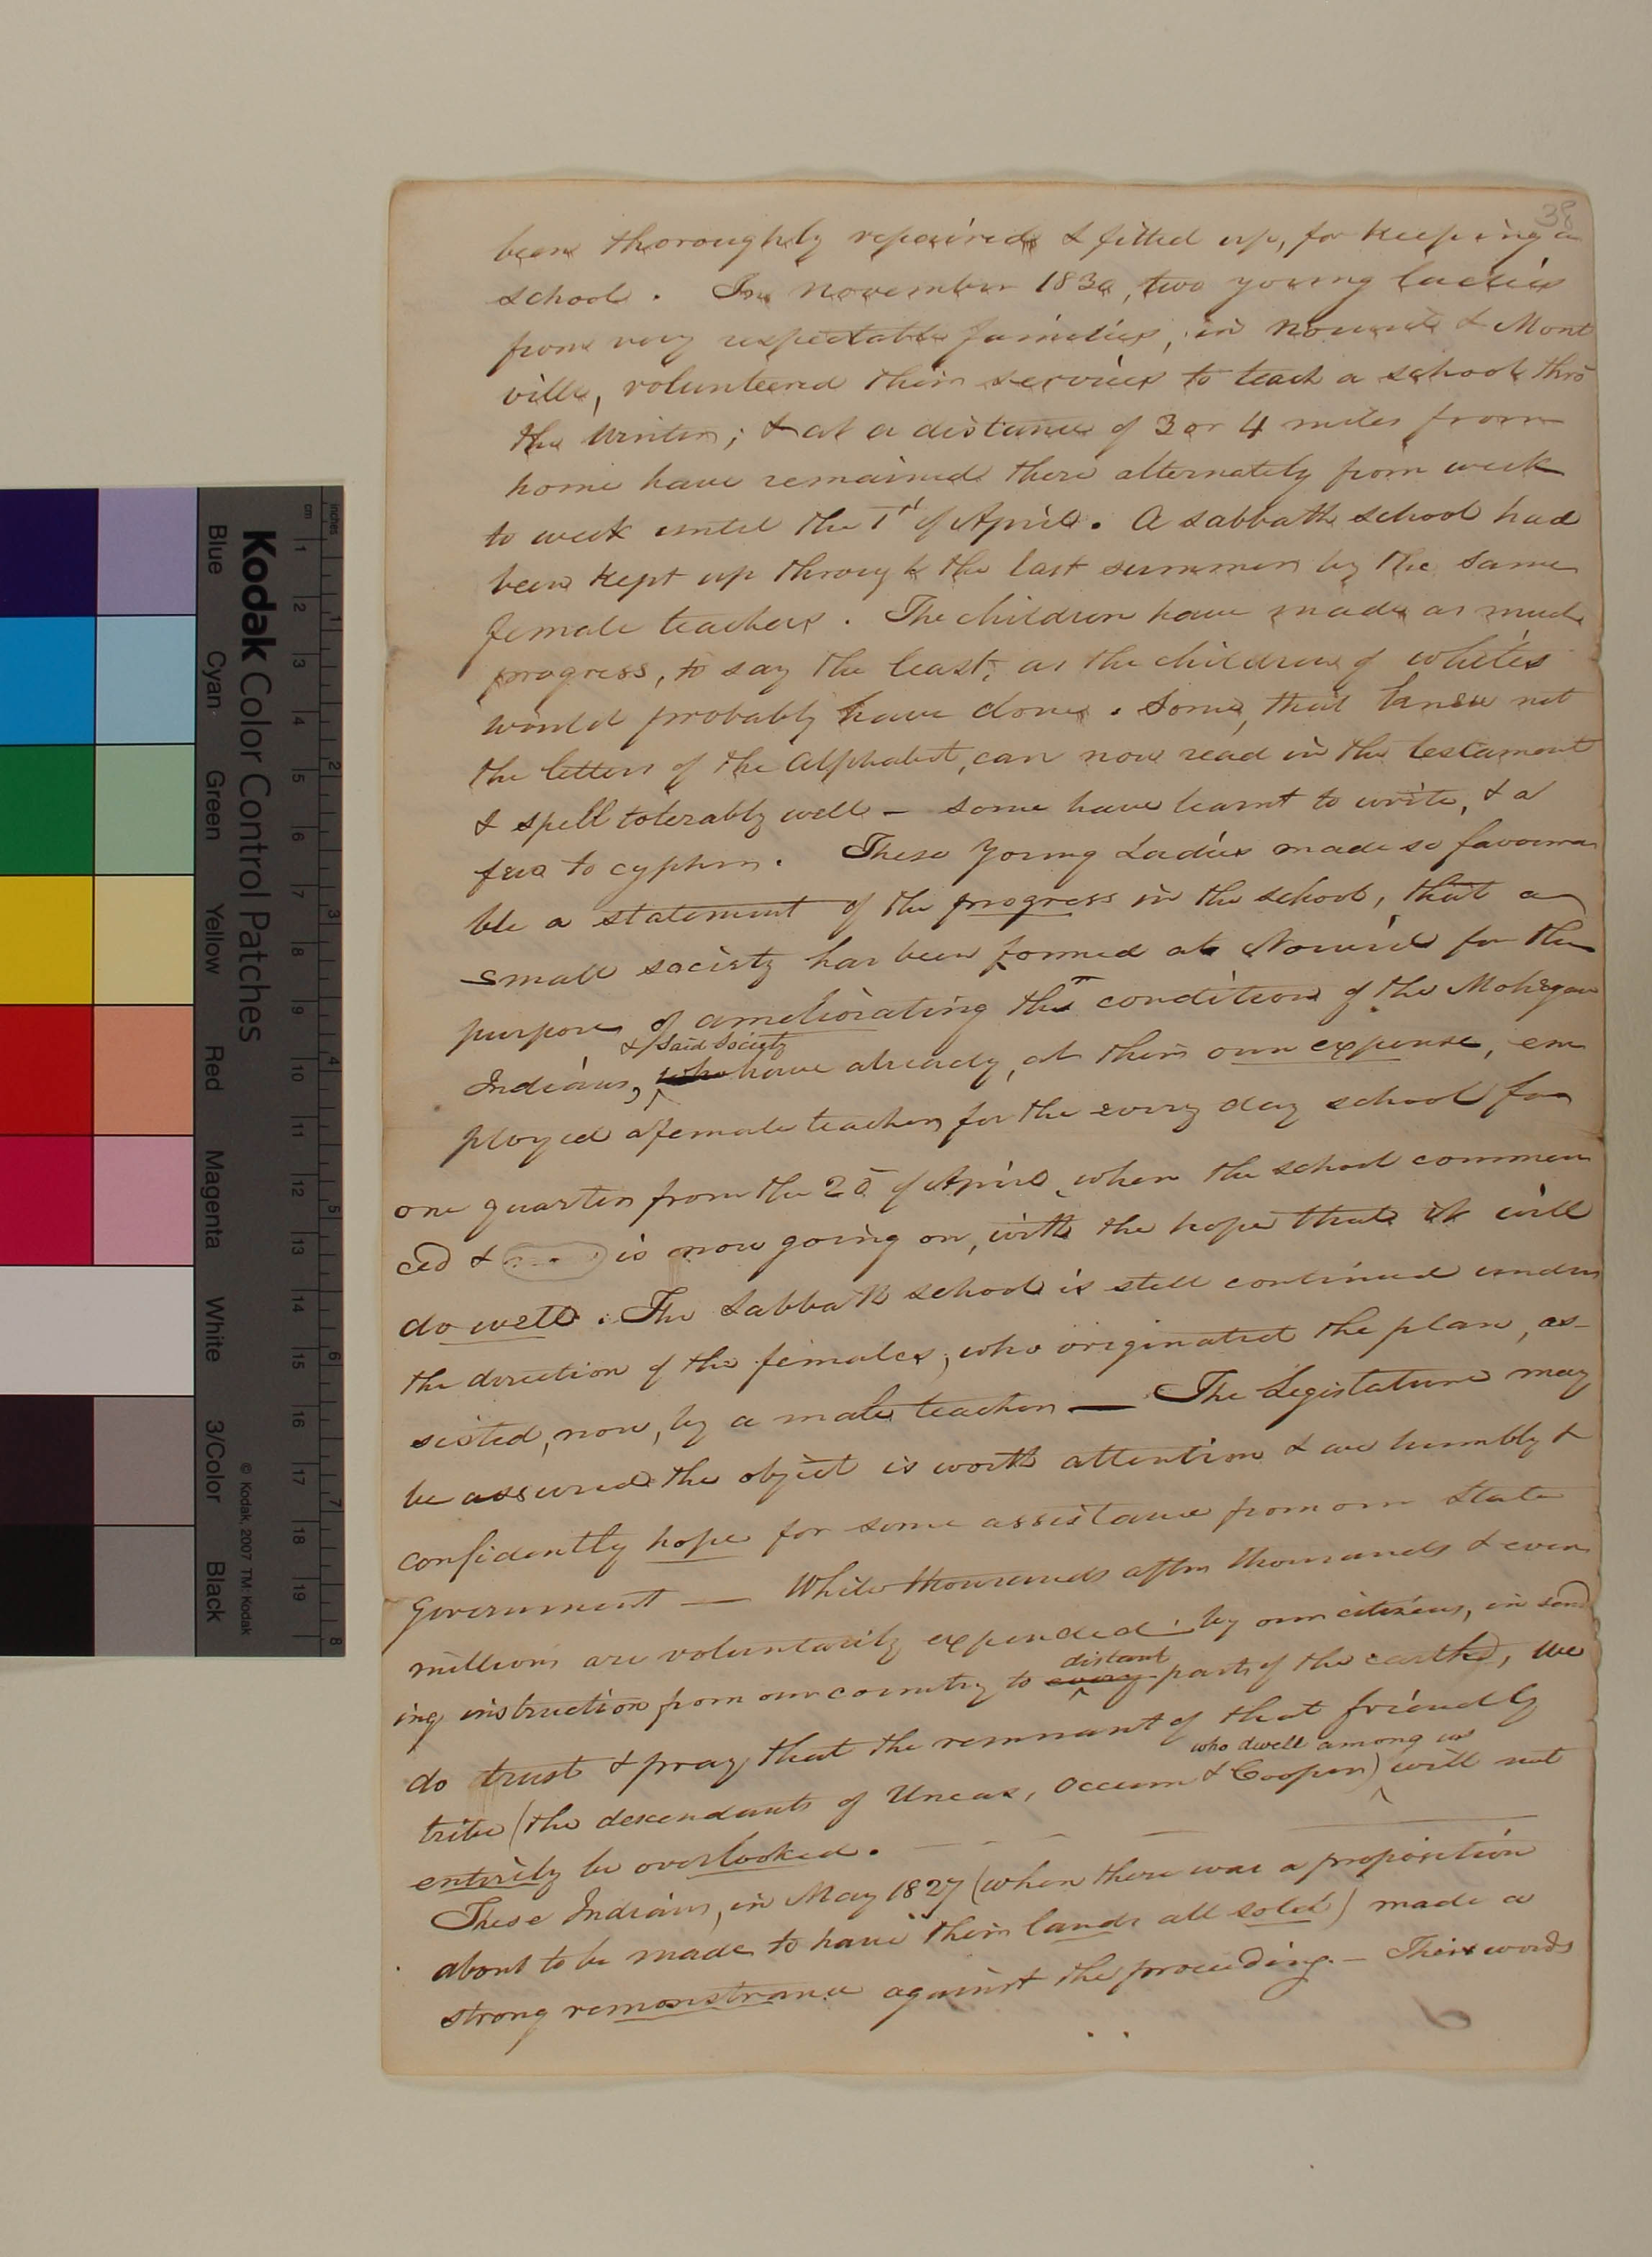 38
been thoroughly repaired & fitted up, for keeping a
school. In November 1830, two young ladies
from very respectable families, in Norwich & Mont
ville, volunteered their services to teach a school thro'
the winter; & at a distance of 3 or 4 miles from
home have remained there alternately from week
to week until the 1st of April. A sabbath school had
been kept up through the last summer by the same
female teachers. The children have made as much
progress, to say the least, as the children of whites
would probably have done. Some, that knew not
the letters of the Alphabet, can now read in the testament
& spell tolerably well — some have learnt to write, & a
few to cypher. These Young Ladies made so favoura
ble a statement of the progress in the school, that a
small society has been formed at Norwich for the
purpose of ameliorating the condition of the Mohegan
& said Society
Indians, who have already, at their own expense, em
ployed a female teacher for the every day school for
one quarter from the 25 of April, when the school commen
ced & is now going on, with the hope that it will
do well. The Sabbath school is still continued under
the direction of the females, who originated the plan, as-
sisted, now, by a male teacher — The Legislature may
be assured the object is worth attention & we humbly &
confidently hope for some assistance from our State
Government — While thousands after thousands & even
millions are voluntarily expended by our citizens, in send
distant
ing instruction from our country to every parts of the earth, we
do trust & pray that the remnant of that friendly
who dwell among us
tribe (the descendants of Uncas, Occum & Cooper) will not
entirely be overlooked.
These Indians, in May 1827 (when there was a proposition
about to be made to have their lands all sold) made a
strong remonstrance against the proceeding. — Their words
Kodak Color Control Patches
© Kodak, 2007 TM: Kodak
Blue Cyan Green Yellow Red Magenta White 3/Color Black
inches 1 2 3 4 5 6 7 8
cm 1 2 3 4 5 6 7 8 9 10 11 12 13 14 15 16 17 18 19